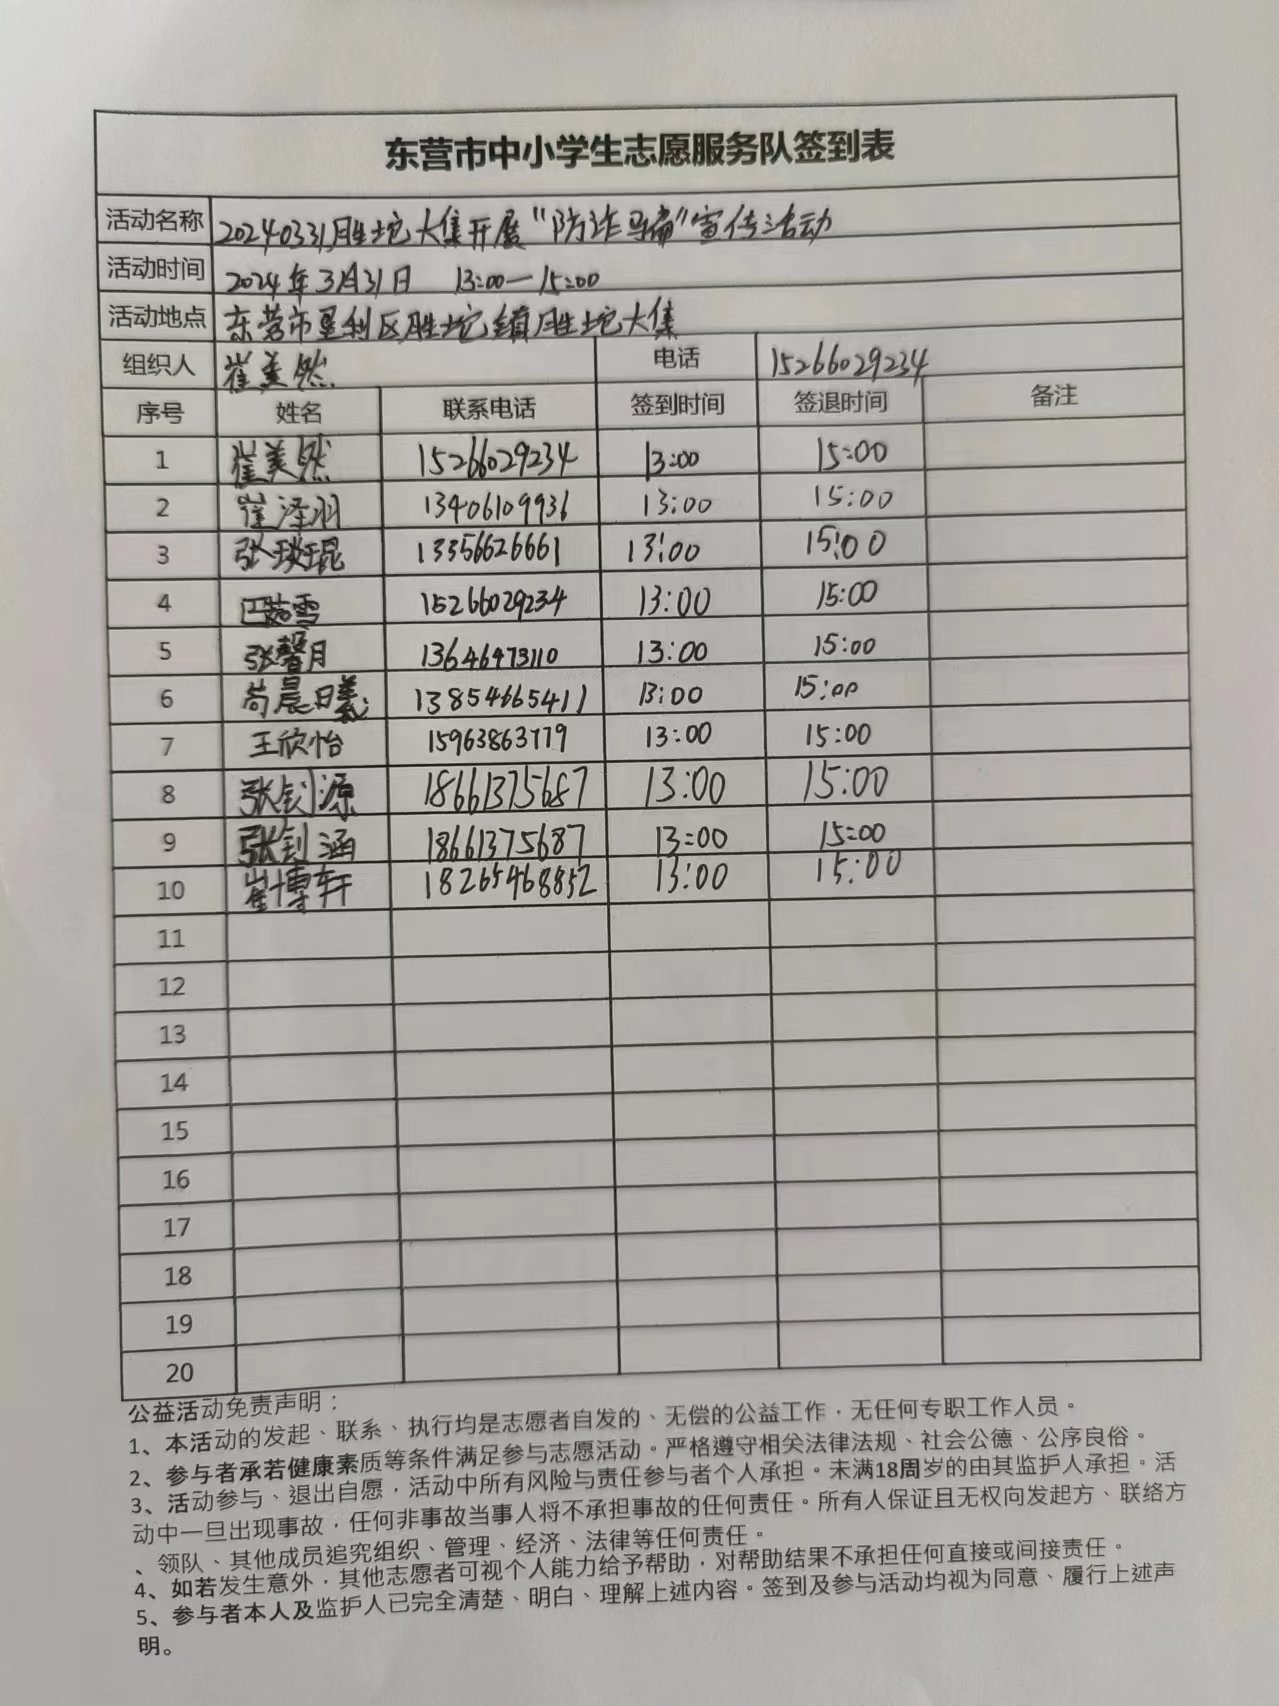 东营市中小学生志愿服务队签到表
活动名称 20240331胜坨大集开展“防诈骗”宣传活动
活动时间 2024年3月31日 13:00—15:00
活动地点 东营市垦利区胜坨镇胜坨大集
组织人 崔美然 电话 15266029234
序号 姓名 联系电话 签到时间 签退时间 备注
1 崔美然 15266029234 13:00 15:00
2 崔泽羽 13406109936 13:00 15:00
3 张琰琨 13356626661 13:00 15:00
4 巴茹雪 15266029234 13:00 15:00
5 张馨月 13646473110 13:00 15:00
6 苟晨曦 13854665411 13:00 15:00
7 王欣怡 15963863779 13:00 15:00
8 张钊源 18661375687 13:00 15:00
9 张钊涵 18661375687 13:00 15:00
10 崔博轩 18265468852 13:00 15:00
11
12
13
14
15
16
17
18
19
20
公益活动免责声明：
1、本活动的发起、联系、执行均是志愿者自发的、无偿的公益工作，无任何专职工作人员。
2、参与者承若健康素质等条件满足参与志愿活动。严格遵守相关法律法规、社会公德、公序良俗。
3、活动参与、退出自愿，活动中所有风险与责任参与者个人承担。未满18周岁的由其监护人承担。活
动中一旦出现事故，任何非事故当事人将不承担事故的任何责任。所有人保证且无权向发起方、联络方
、领队、其他成员追究组织、管理、经济、法律等任何责任。
4、如若发生意外，其他志愿者可视个人能力给予帮助，对帮助结果不承担任何直接或间接责任。
5、参与者本人及监护人已完全清楚、明白、理解上述内容。签到及参与活动均视为同意、履行上述声
明。